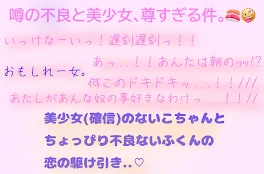 噂の不良と美少女、尊すぎる件。🥓🤪
いっけなーいっ！遅刻遅刻っ！！
あっ...！！あんたは朝のッッ!?
おもしれー女。
何このドキドキッ...！！//
あたしがあんな奴の事好きなわけっ...！！//
美少女(確信)のないこちゃんと
ちょっぴり不良ないふくんの
恋の駆け引き..♡